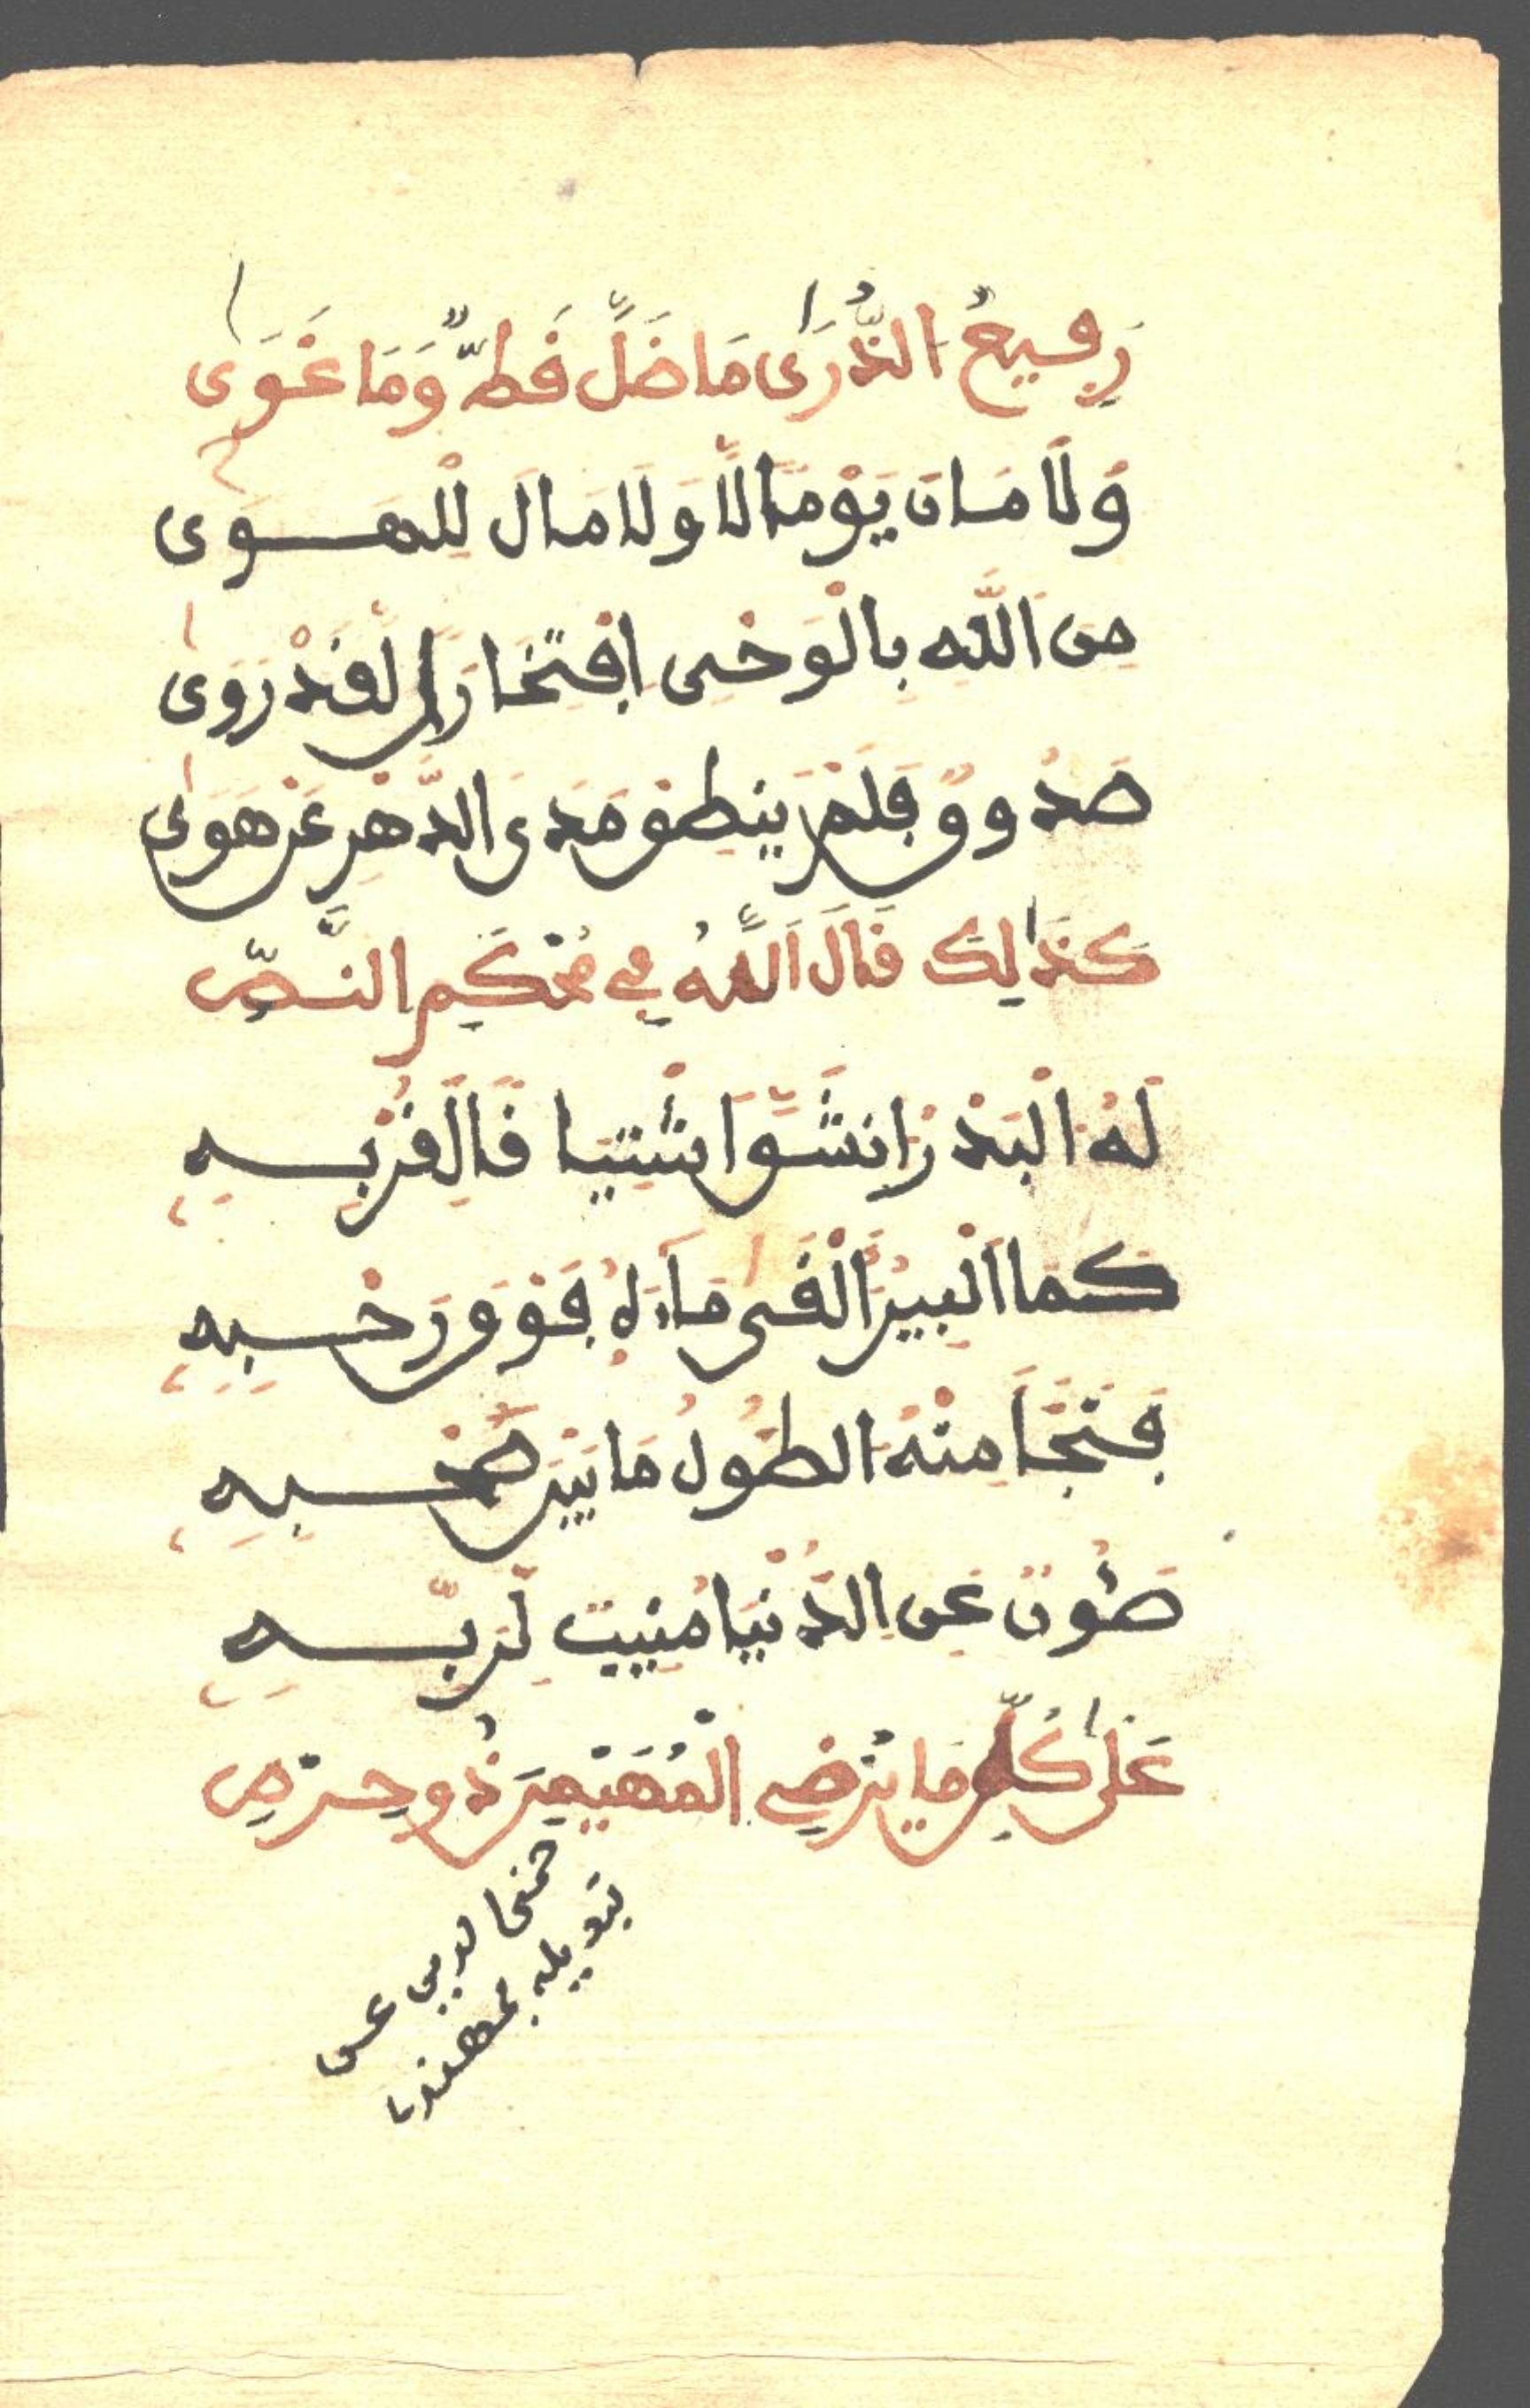 رَفِيعُ الذُّرَى مَا ضَلَّ قَطُّ وَمَا غَوَى
وَلَا مَانَ يَوْمًا لَا وَلَا مَالَ لِلْهَوَى
مِنَ اللَّهِ بِالْوَحْيِ افْتِخَارًا لَقَدْ رَوَى
صَدُوقٌ فَلَمْ يَنْطِقْ مَدَى الدَّهْرِ عَنْ هَوَى
كَذَالِكَ قَالَ اللَّهُ فِي مُحْكَمِ النَّصِّ
لَهُ الْبَدْرُ انْشَقَّ اثْنَتَيْا قَالَ لِقُرْبِهِ
كَمَا الْبِيرُ أَلْقَى مَاءَهُ فَوْقَ رَحْبِهِ
فَنَجَا مِنْهُ الطُّولُ مَا بَيْنَ صَحْبِهِ
صَئُونٌ عَنِ الدُّنْيَا مُنِيبٌ لِرَبِّهِ
عَلَى كُلِّ مَا يُرْضِي الْمُهَيْمِنَ ذُو حِرْصِ